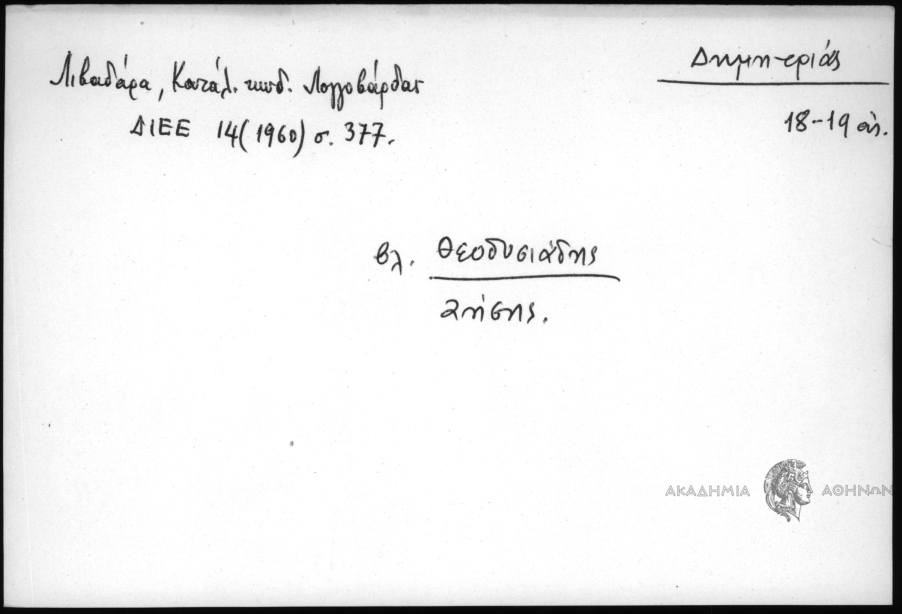 Λιβαδάρα, Κατάλ. κωδ. Λογγοβάρδας
ΔΙΕΕ 14 (1960) σ. 377.
Δημητριάς
18-19 αἰ.
βλ. Θεοδυσιάδης
Ζήσης.
ΑΚΑΔΗΜΙΑ ΑΘΗΝΩΝ